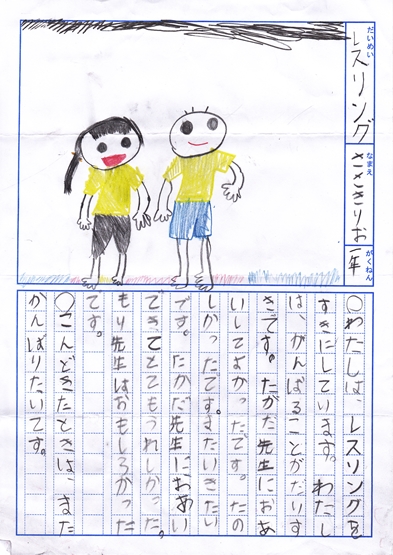 だいめい
レスリング
なまえ
ささきりお
がくねん
一年
〇わたしは、レスリングを
すきにしています。わたし
は、がんばることがだいす
きです。たかだ先生におあ
いしてよかったです。たの
しかったです。またいきたい
です。たかだ先生におあい
できてとてもうれしかった。
もり先生はおもしろかった
です。
〇こんどきたときは、また
がんばりたいです。